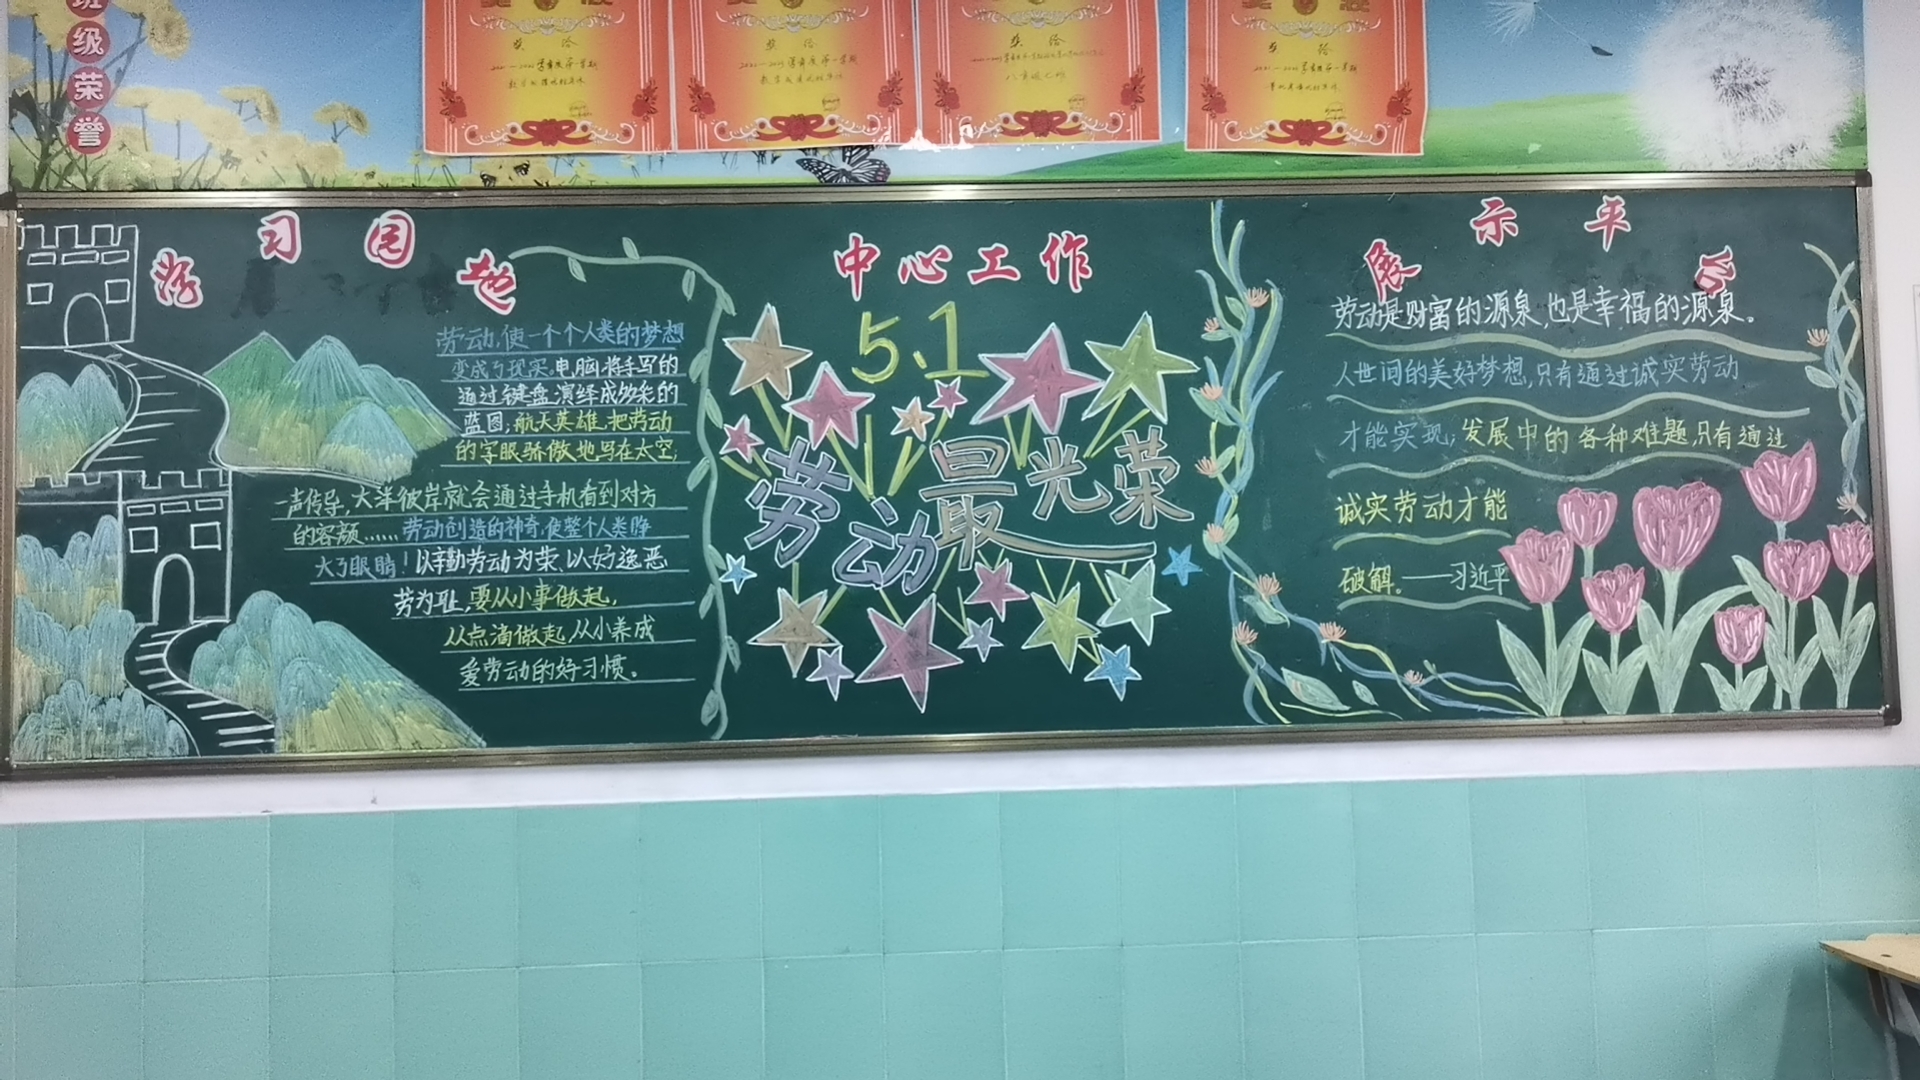 班级荣誉
奖 给
奖 给
奖 给
奖 给
学习园地
劳动,使一个个人类的梦想
变成了现实.电脑,将手写的
通过键盘,演绎成多彩的
蓝图;航天英雄,把劳动
的字眼骄傲地写在太空;
一声传导,大洋彼岸就会通过手机看到对方
的容颜……劳动创造的神奇,使整个人类睁
大了眼睛!以辛勤劳动为荣、以好逸恶
劳为耻,要从小事做起,
从点滴做起,从小养成
爱劳动的好习惯。
中心工作
5.1
劳动最光荣
展示平台
劳动是财富的源泉,也是幸福的源泉。
人世间的美好梦想,只有通过诚实劳动
才能实现;发展中的各种难题,只有通过
诚实劳动才能
破解。——习近平